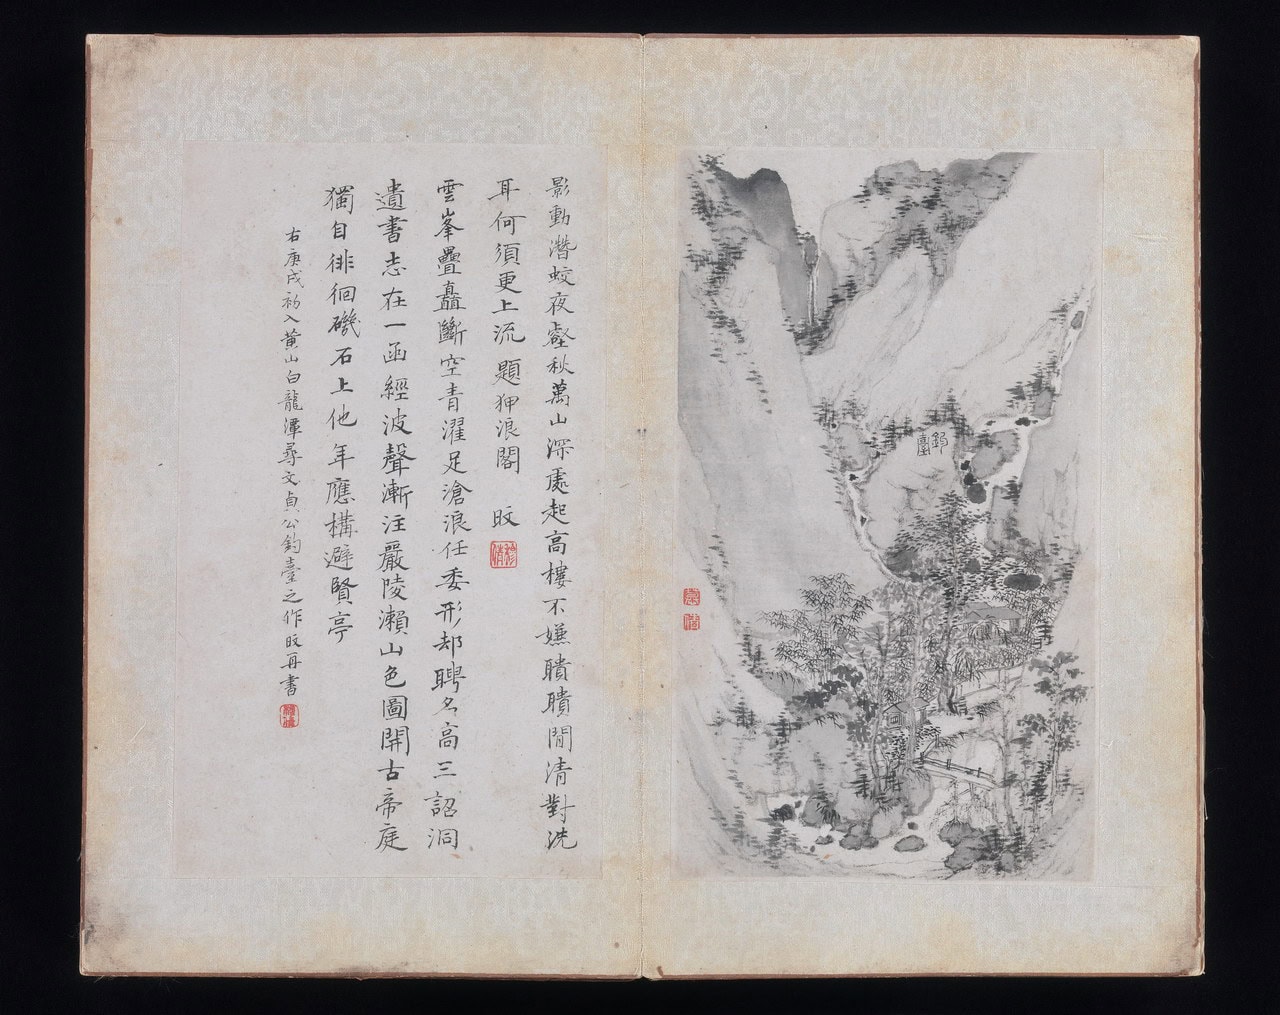 影動潛蛟夜壑秋萬山深處起高樓不嫌聵聵閒清對洗
耳何須更上流　題狎浪閣　旼
雲峯疊矗斷空青濯足滄浪任委形却聘名高三詔洞
遺書志在一函經波聲漸注嚴陵瀨山色圖開古帝庭
獨自徘徊磯石上他年應構避賢亭
右庚戌初入黃山白龍潭尋文貞公釣臺之作旼再書
釣
臺